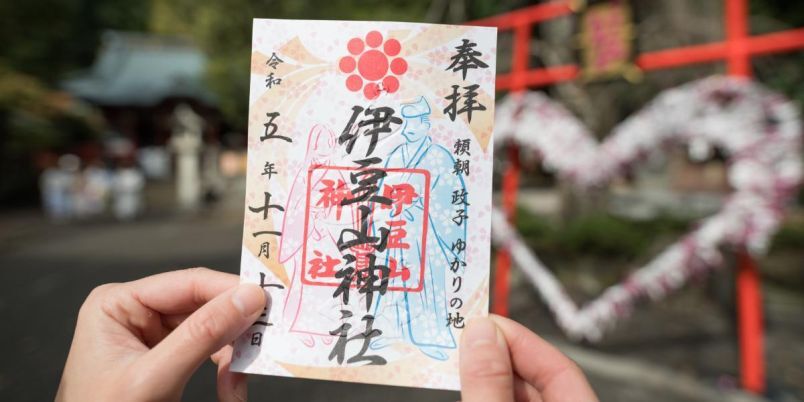 奉拝
頼朝 政子 ゆかりの地
伊豆山神社
伊豆山
神社
令和 五 年 十一月 十 日